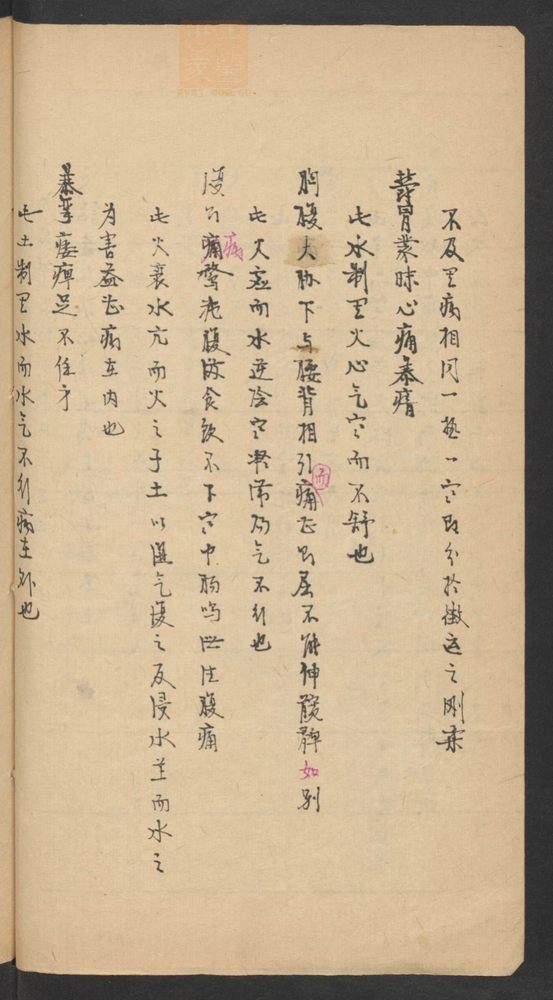 不及里病相同一热一寒即分於徵运之刚柔
鬱冒蒙昧心痛暴瘖
此水制里火心气寒而不舒也
胸腹大胁下与腰背相引而痛甚则屈不能伸髋髀如别
此火衰而水逆陰寒凝滞为气不行也
復则病鶩溏腹满食饮不下寒中肠鸣泄注腹痛
此火衰水亢而火之子土以濕气復之反侵水並而水之
为害益甚病在内也
暴挛痿痺足不任身
此土制里水而水气不行病在外也